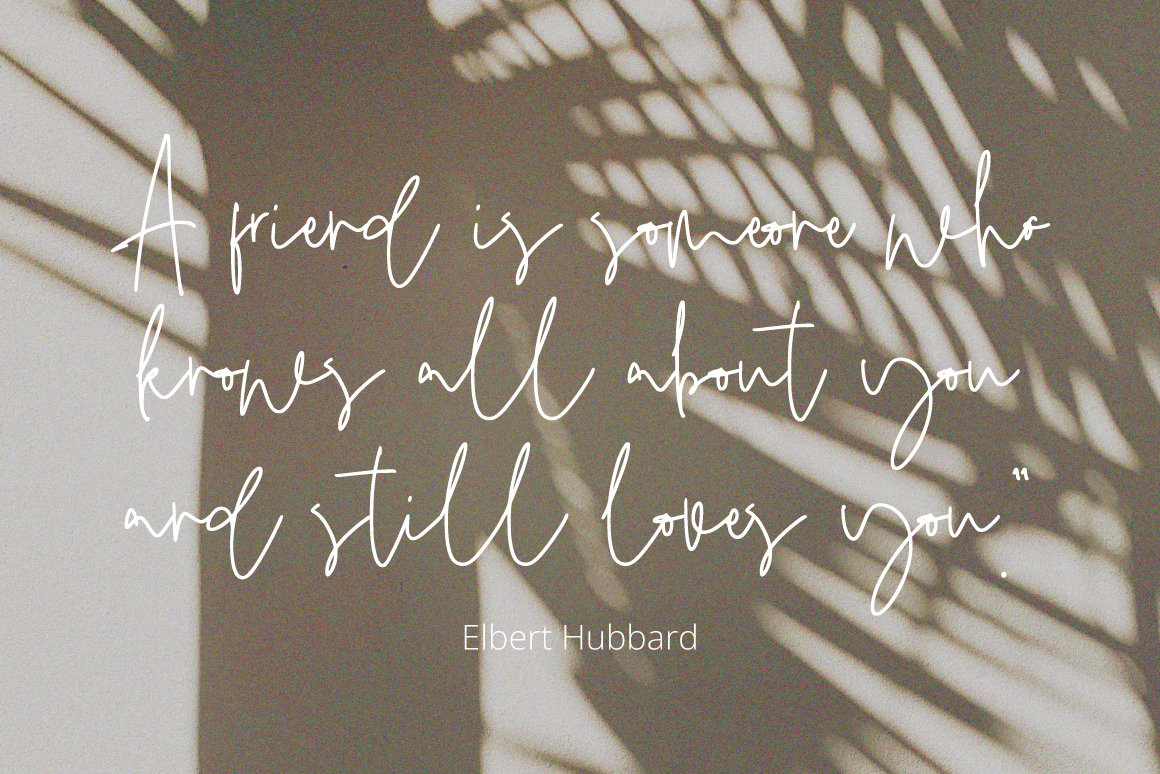 A friend is someone who
knows all about you
and still loves you."
Elbert Hubbard